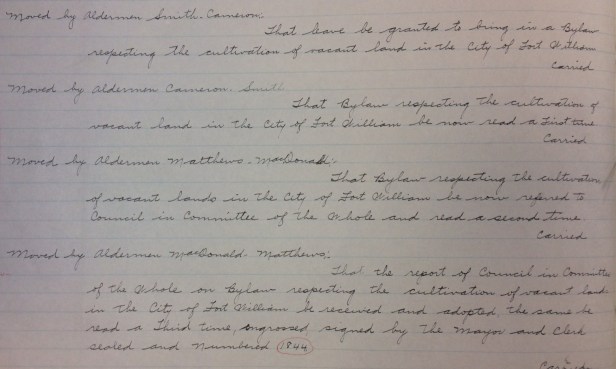 Moved by Aldermen Smith. Cameron.
That leave be granted to bring in a Bylaw
respecting the cultivation of vacant land in the City of Fort William
Carried
Moved by Aldermen Cameron. Smith
That Bylaw respecting the cultivation of
vacant land in the City of Fort William be now read a First time
Carried
Moved by Aldermen Matthews. MacDonald.
That Bylaw respecting the cultivation
of vacant lands in the City of Fort William be now referred to
Council in Committee of the Whole and read a second time.
Carried
Moved by Aldermen MacDonald. Matthews.
That the report of Council in Committee
of the Whole on Bylaw respecting the cultivation of vacant land
in the City of Fort William be received and adopted, the same be
read a Third time, engrossed signed by the Mayor and Clerk
sealed and Numbered 1844
Carried